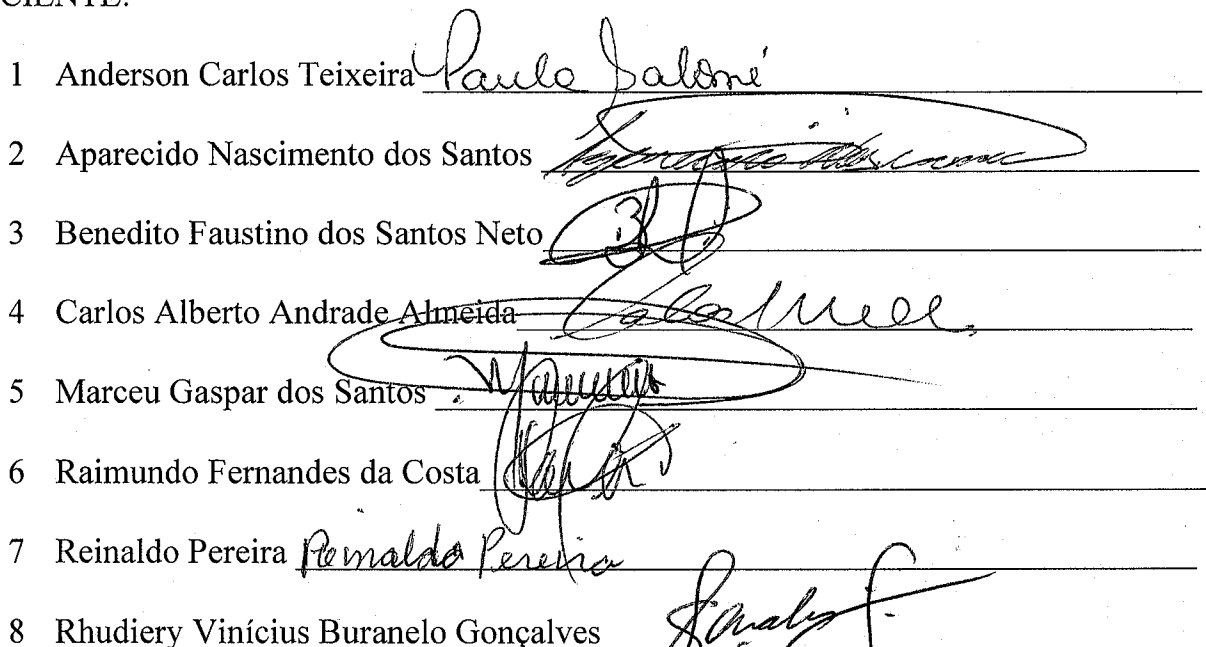 CIENTE:
1 Anderson Carlos Teixeira Paula Salomé
2 Aparecido Nascimento dos Santos
3 Benedito Faustino dos Santos Neto
4 Carlos Alberto Andrade Almeida
5 Marceu Gaspar dos Santos
6 Raimundo Fernandes da Costa
7 Reinaldo Pereira Reinaldo Pereira
8 Rhudiery Vinícius Buranelo Gonçalves